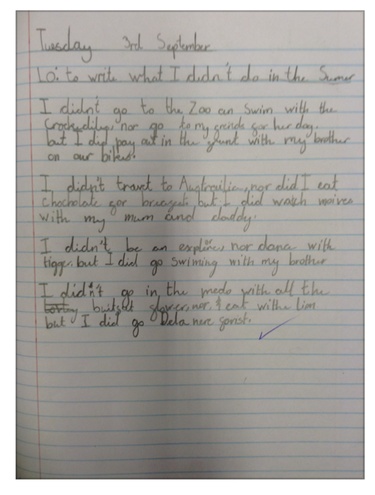 Tuesday 3rd September
Lo: to write what I didn't do in the Sumer
I didn't go to the Zoo an Swim with the
nor go to my for her day.
but I did pay out in the with my brother
on our bikes.
I didn't travl to nor did I eat
Chocholate for but I did watch
with my mum and daddy.
I didn't be an explorer nor danc with
tigger but I did go Swiming with my brother
I didn't go in the medo with all the
nor eat with a lion
but I did go Dela mere